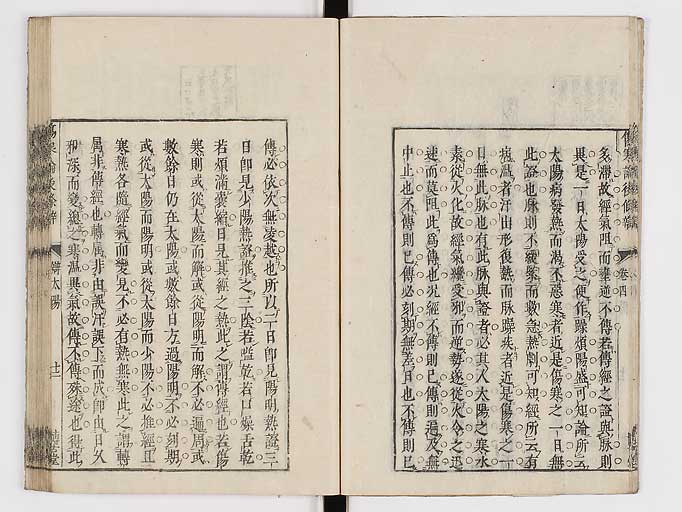 多滯故經氣阻而壅逆不傳若傳經之證與脉則
異是一日太陽受之便作躁煩陽盛可知論所云
太陽病發熱而渴不惡寒者近是傷寒之一日無
此證也脉則不緩緊而數急熱劇可知經所云有
病溫者汗出復熱而脉躁疾者近是傷寒之一
日無此脉也有此脉與證者必其人太陽之寒水
素從火化故經氣纔受邪而逆勢遂從火令之迅
速而莫阻此為傳也况經不傳則已傳則遍及無
中止也不傳則已傳必刻期無差日也不傳則已
傳必依次無凌越也所以二日即見陽明熱證三
日即見少陽熱證推之三陰若嗌乾若口燥舌乾
若煩滿囊縮日見其經之熱此之謂傳經也若傷
寒則或從太陽而解或從陽明而解不必遍周或
數餘日仍在太陽或數餘日方過陽明不必刻期
或從太陽而陽明或從太陽而少陽不必推經且
寒熱各隨經氣而變見不必有熱無寒此之謂轉
屬非傳經也轉屬非由誤汗誤下而成即由日久
邪深而變遷之寒溫異氣故傳不傳殊途也從此
傷寒論後條辨
卷四
辨太陽